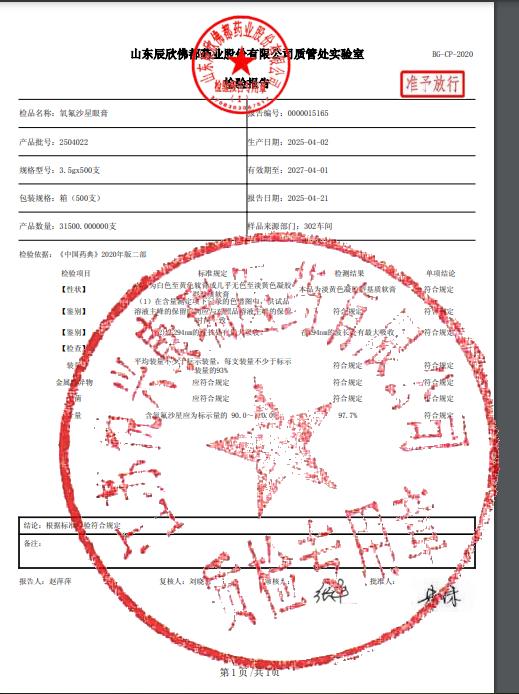 山东辰欣佛都药业股份有限公司质管处实验室
BG-CP-2020
检验报告
准予放行
检品名称：氧氟沙星眼膏
报告编号：0000015165
产品批号：2504022
生产日期：2025-04-02
规格型号：3.5gx500支
有效期至：2027-04-01
包装规格：箱（500支）
报告日期：2025-04-21
产品数量：31500.000000支
样品来源部门：302车间
检验依据：《中国药典》2020年版二部
检验项目 标准规定 检测结果 单项结论
【性状】 为白色至黄色软膏或几乎无色至淡黄色凝胶 基质软膏 本品为淡黄色凝胶 基质软膏 符合规定
【鉴别】 （1）在含量测定项下记录的色谱图中，供试品
溶液主峰的保留时间应与对照品溶液主峰的保 符合规定 符合规定
【鉴别】 294nm的波长处有最大吸收 294nm的波长处有最大吸收 符合规定
【检查】
装量 平均装量不少于标示装量，每支装量不少于标示
装量的93% 符合规定 符合规定
金属性异物 应符合规定 符合规定 符合规定
应符合规定 符合规定 符合规定
含氧氟沙星应为标示量的 90.0～ 97.7% 符合规定
结论：根据标准 检验符合规定
备注：
报告人：赵萍萍 复核人：刘晓 审核人： 批准人：
第 1 页 /共 1 页